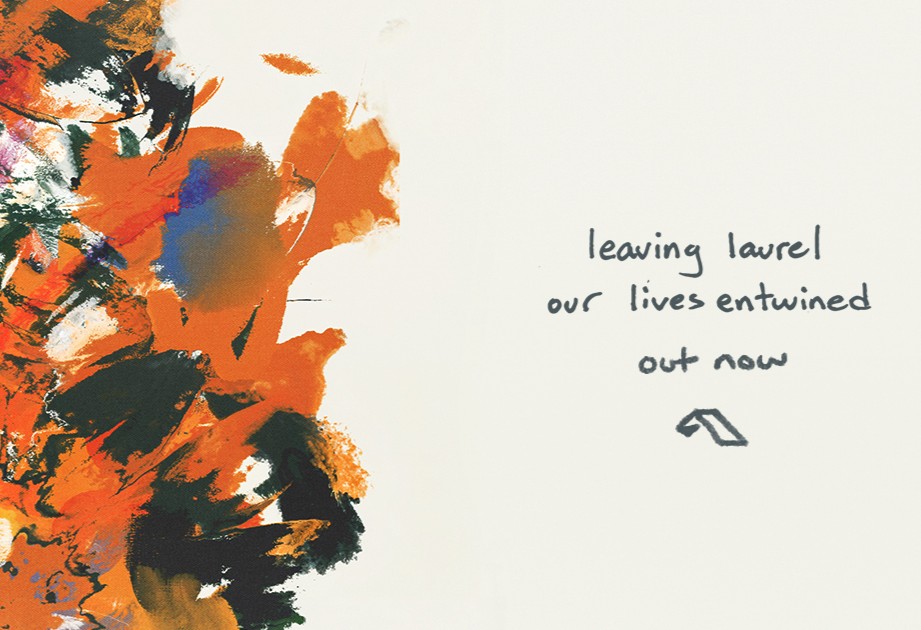 leaving laurel
our lives entwined
out now